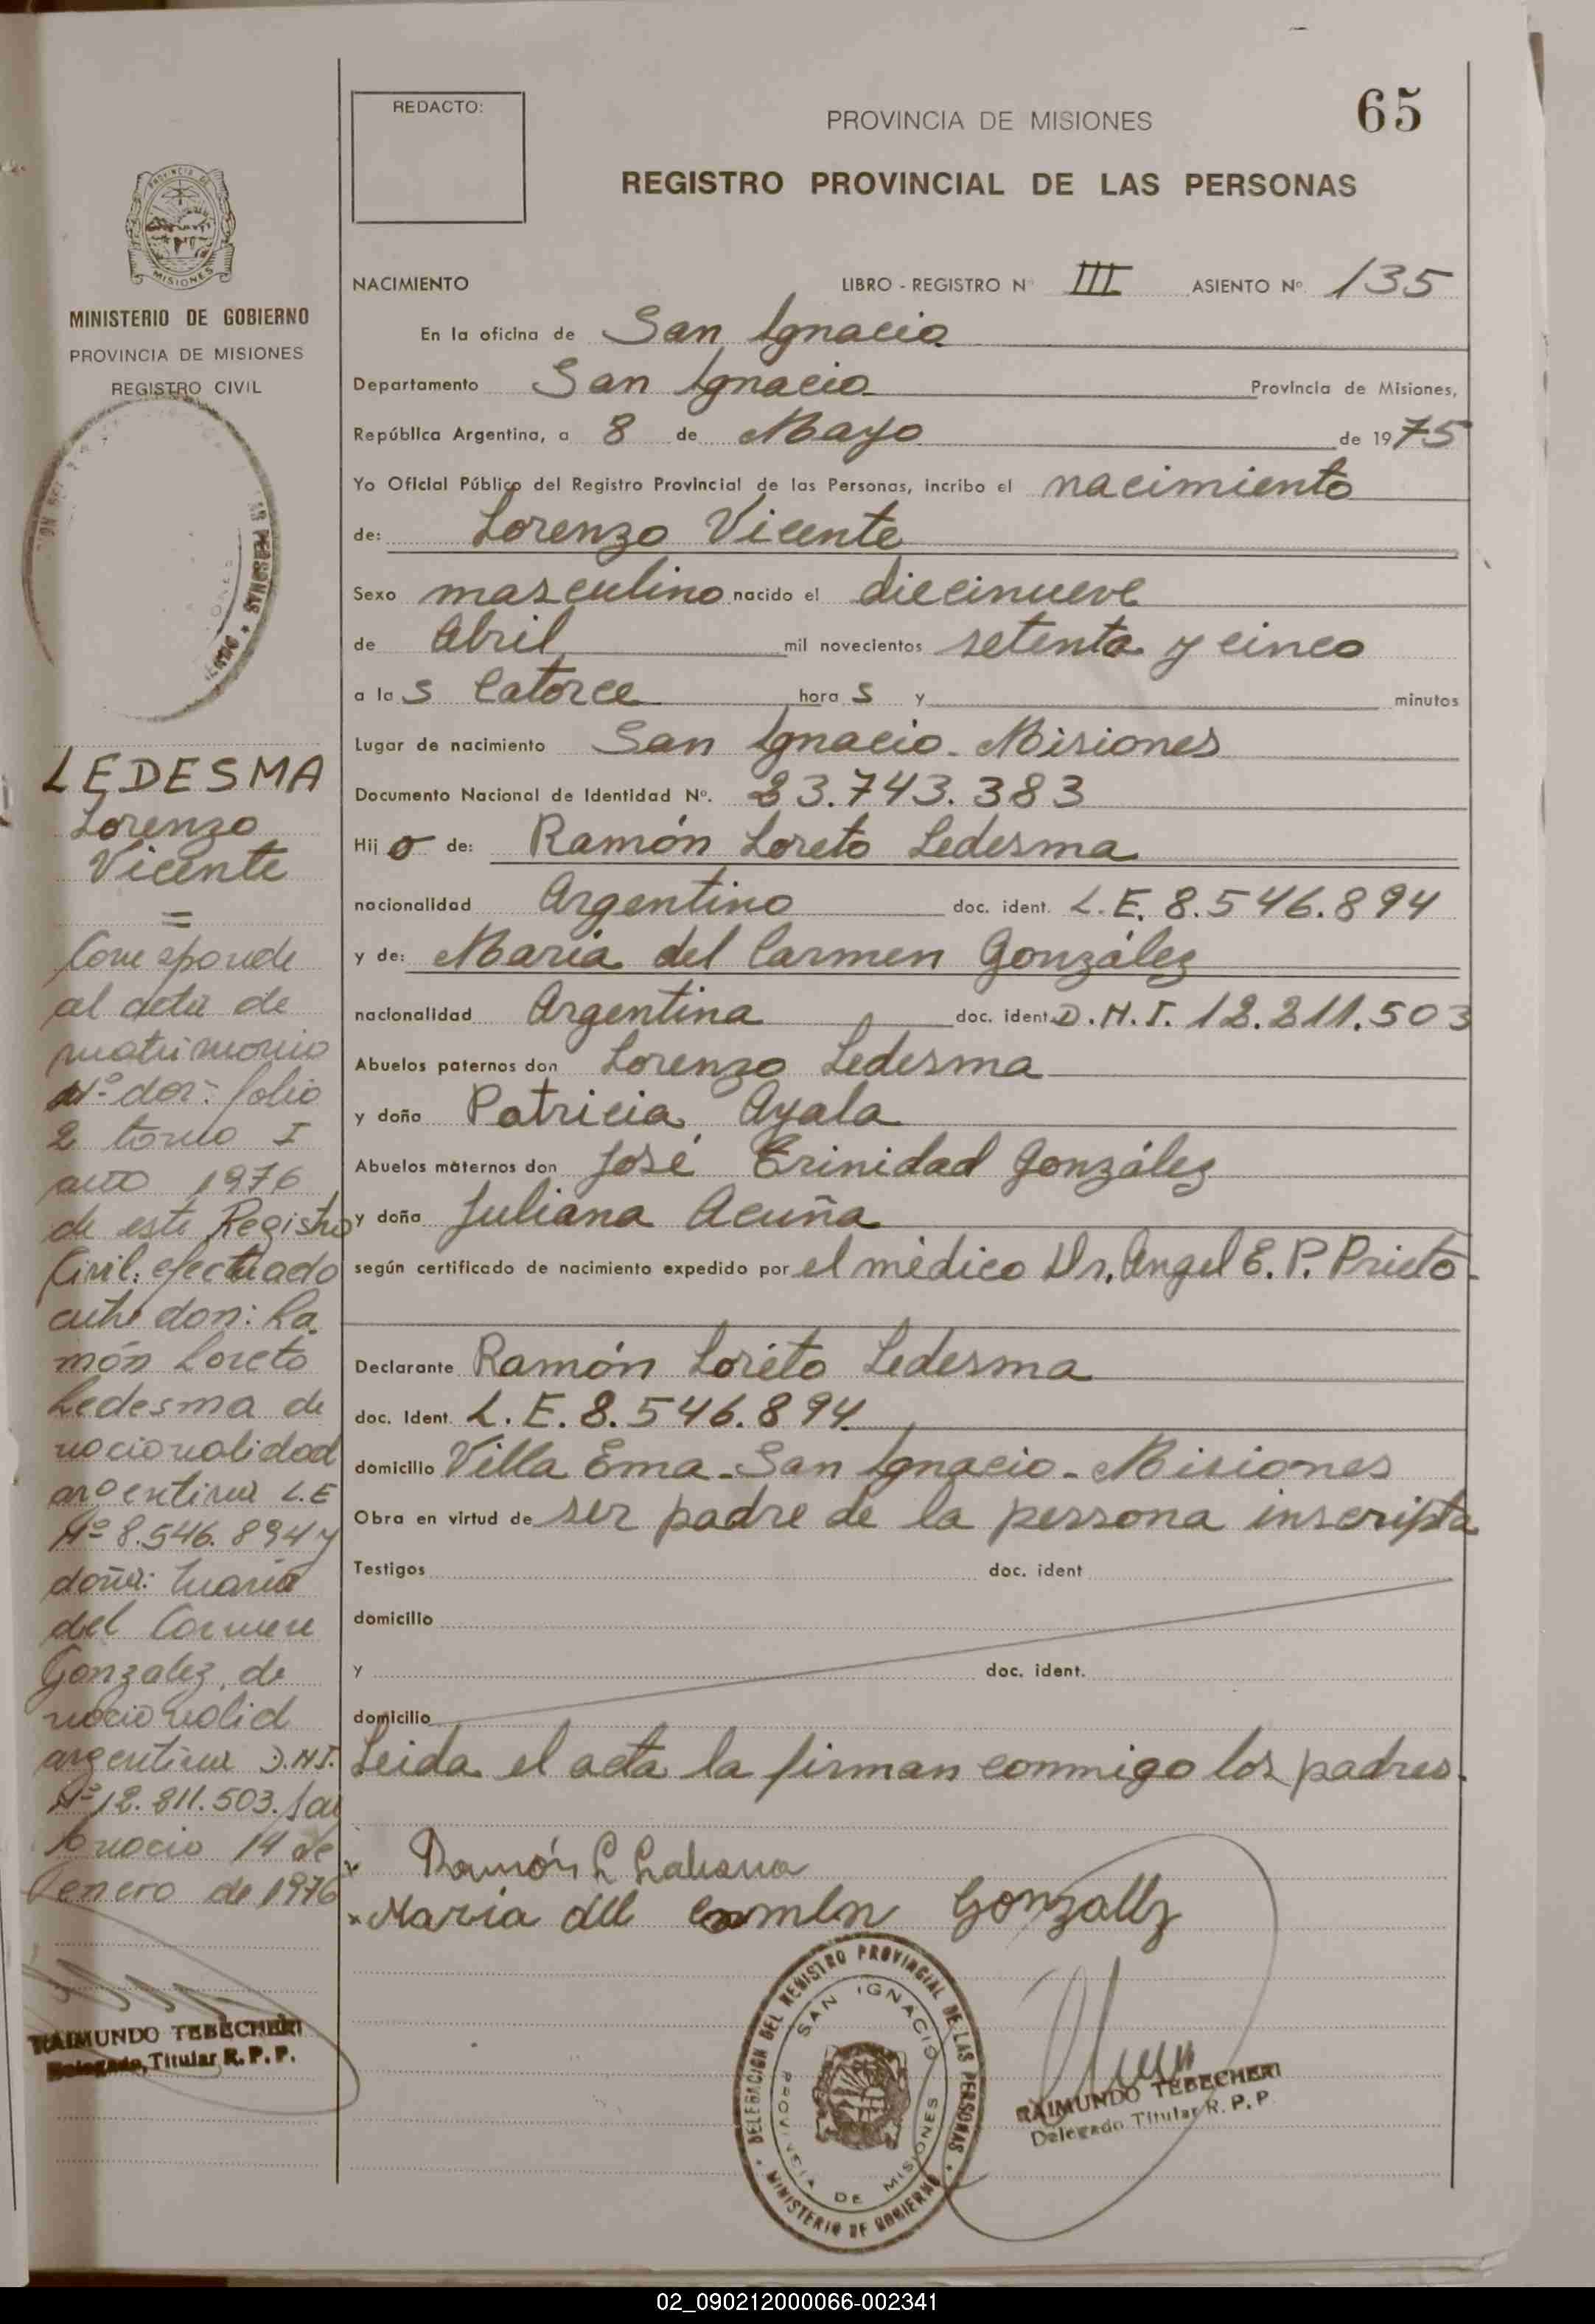 65
REDACTO:
PROVINCIA DE MISIONES
REGISTRO PROVINCIAL DE LAS PERSONAS
NACIMIENTO LIBRO - REGISTRO Nº III ASIENTO Nº 135
En la oficina de San Ignacio
Departamento San Ignacio Provincia de Misiones,
República Argentina, a 8 de Mayo de 1975
Yo Oficial Público del Registro Provincial de las Personas, incribo el nacimiento
de: Lorenzo Vicente
Sexo masculino nacido el diecinueve
de Abril mil novecientos setenta y cinco
a las Catorce horas y minutos
Lugar de nacimiento San Ignacio - Misiones
Documento Nacional de Identidad Nº. 23.743.383
Hijo de: Ramón Loreto Ledesma
nacionalidad Argentino doc. ident. L.E. 8.546.894
y de: María del Carmen González
nacionalidad Argentina doc. ident. D.N.I. 12.211.503
Abuelos paternos don Lorenzo Ledesma
y doña Patricia Ayala
Abuelos maternos don José Trinidad González
y doña Juliana Acuña
según certificado de nacimiento expedido por el médico Dr. Angel E. P. Prieto.
Declarante Ramón Loreto Ledesma
doc. Ident. L.E. 8.546.894
domicilio Villa Ema - San Ignacio - Misiones
Obra en virtud de ser padre de la persona inscripta
Testigos doc. ident
domicilio
y doc. ident.
domicilio
Leida el acta la firman conmigo los padres.
Ramón L
María del Carmen Gonzalez
DELEGACION DEL REGISTRO PROVINCIAL DE LAS PERSONAS
MINISTERIO DE GOBIERNO
SAN IGNACIO
PROVINCIA DE MISIONES
RAIMUNDO TEBECHERI
Delegado Titular R. P. P.
PROVINCIA DE
MISIONES
MINISTERIO DE GOBIERNO
PROVINCIA DE MISIONES
REGISTRO CIVIL
LAS PERSONAS
LEDESMA
Lorenzo
Vicente
=
Corresponde
al acta de
matrimonio
Nº dos: folio
2 tomo I
año 1976
de este Registro
Civil: efectuado
entre don: Ra
món Loreto
Ledesma de
nacionalidad
argentina L.E
Nº 8.546.894 y
doña: María
del Carmen
Gonzalez, de
nacionalid
argentina D.N.I.
Nº 12.211.503. San
Ignacio 14 de
enero de 1976
RAIMUNDO TEBECHERI
Delegado, Titular R. P. P.
02_090212000066-002341